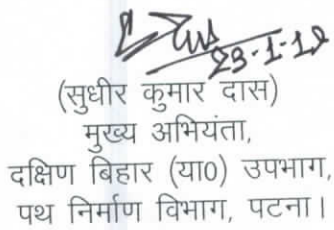 23-1-19
(सुधीर कुमार दास)
मुख्य अभियंता,
दक्षिण बिहार (या0) उपभाग,
पथ निर्माण विभाग, पटना।